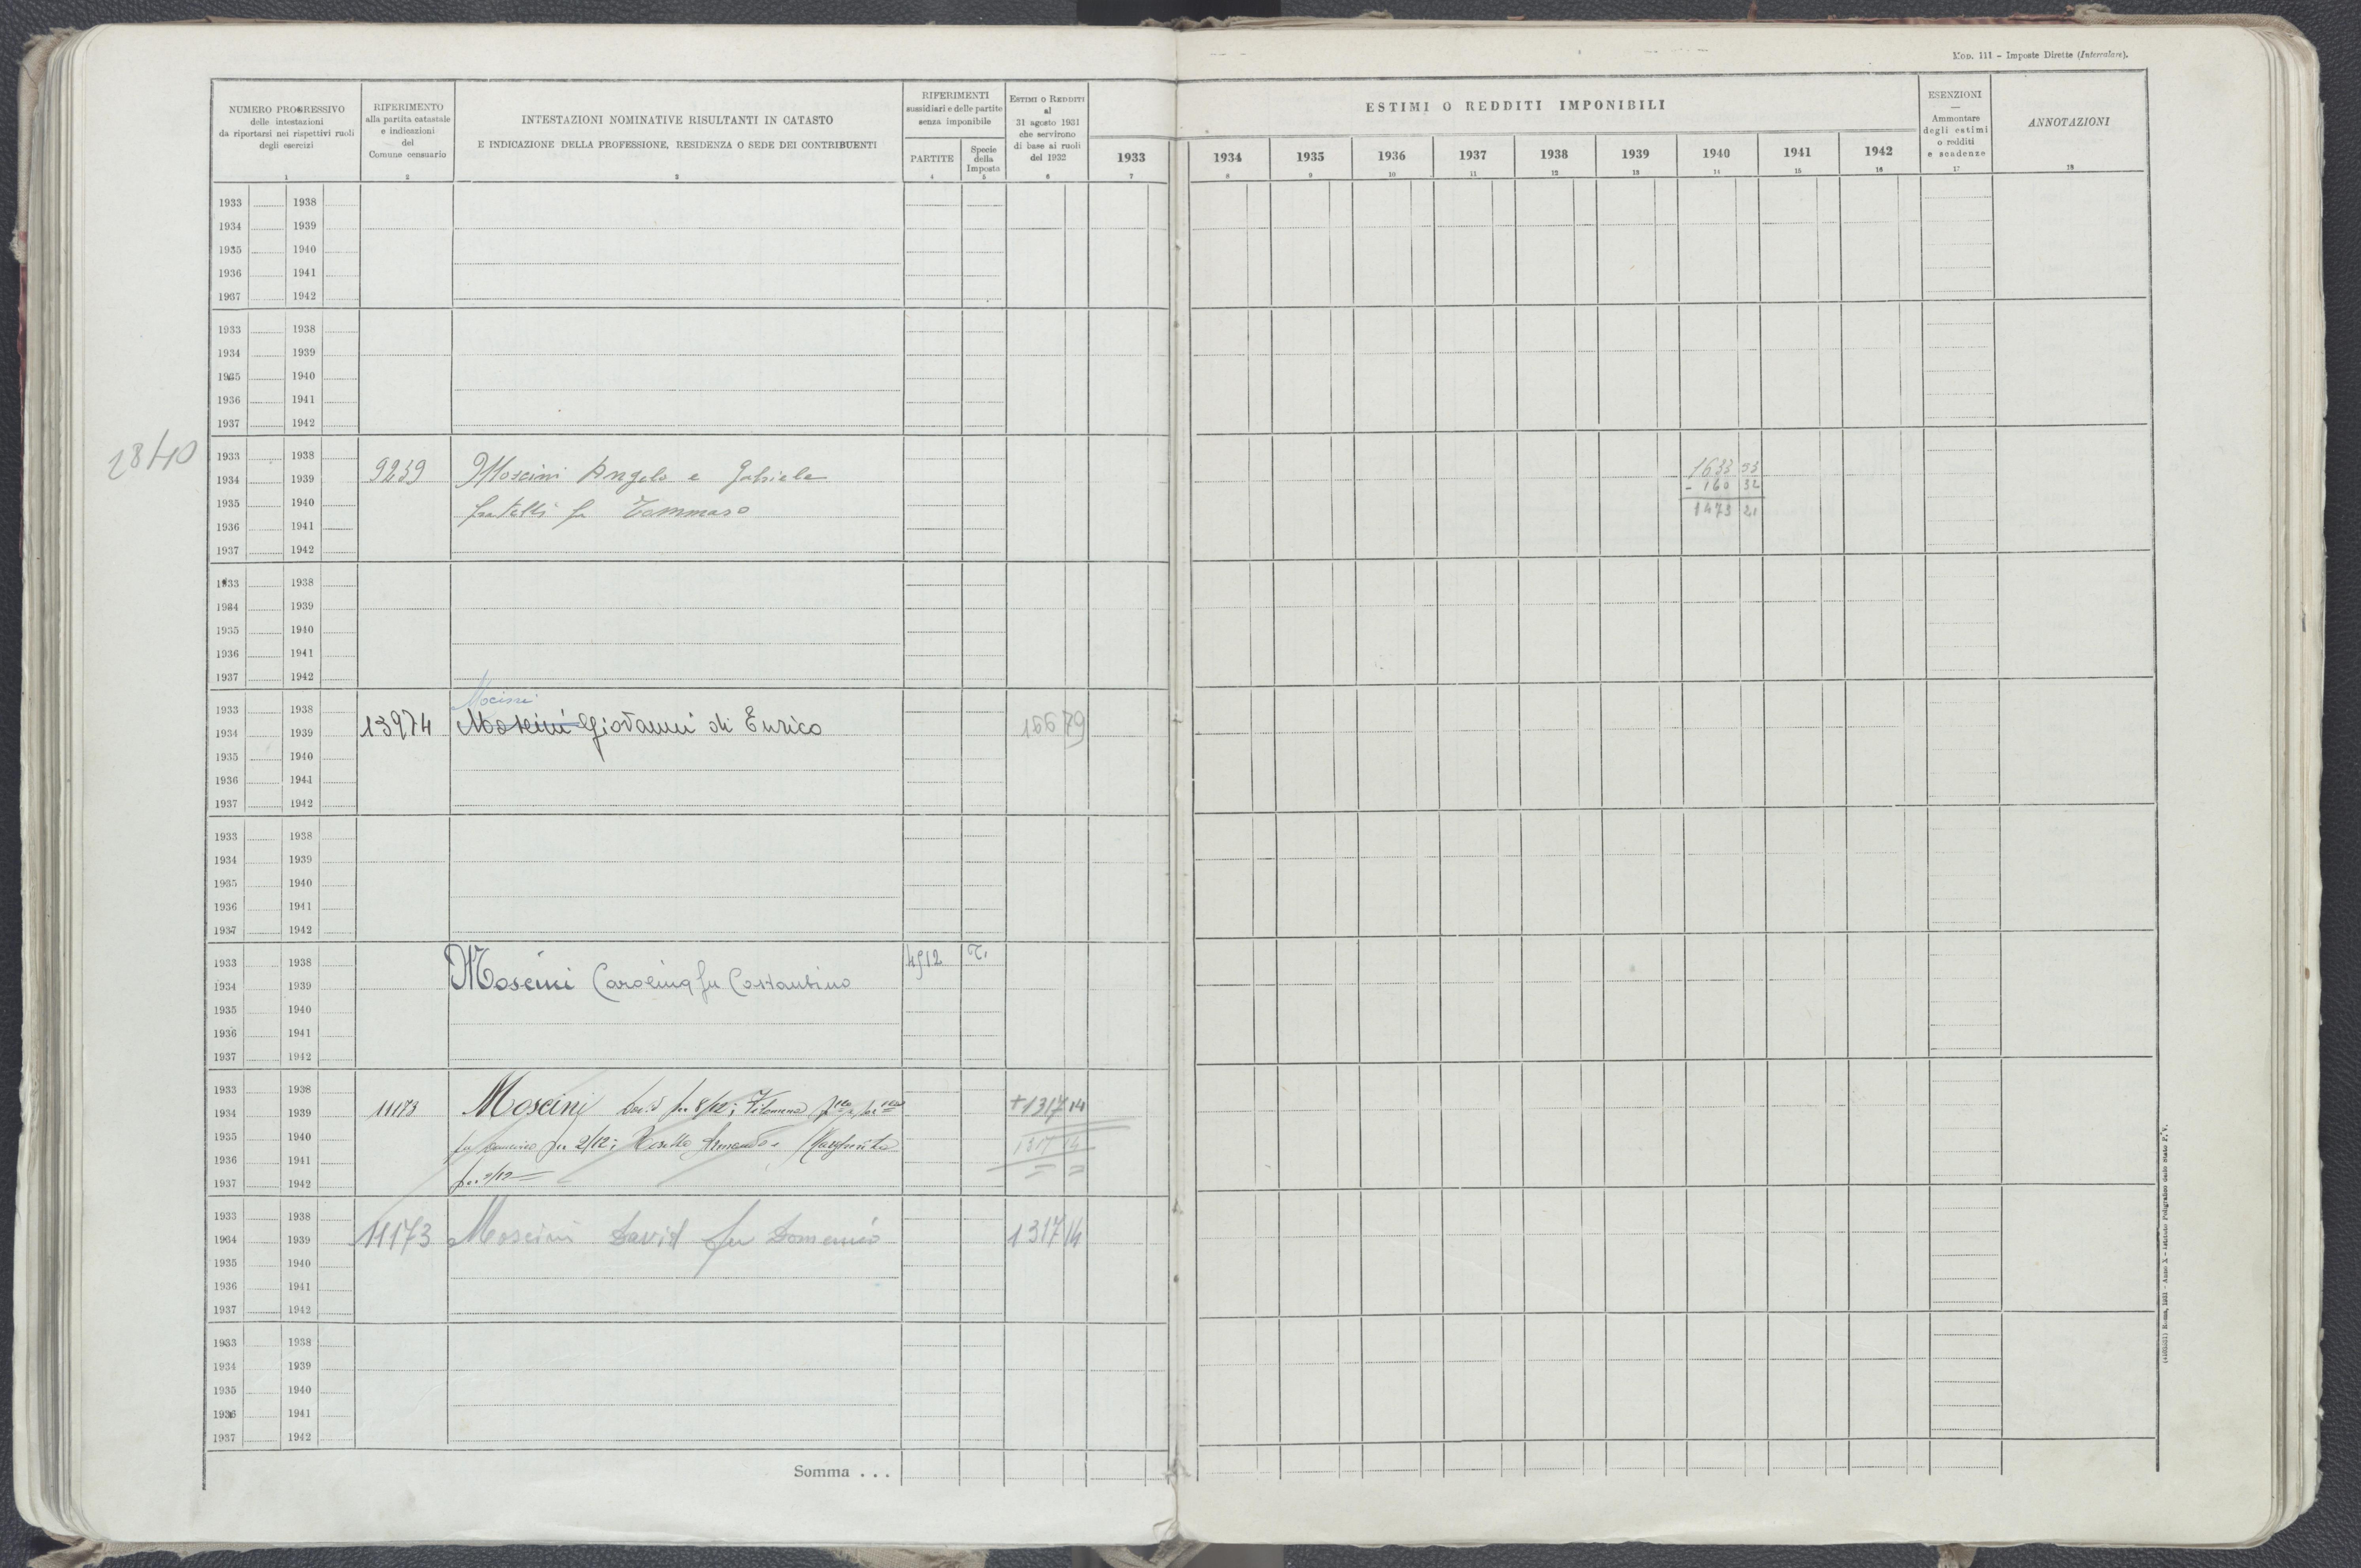 Mod. 111 - Imposte Dirette (Intercalare).
NUMERO PROGRESSIVO
delle intestazioni
da riportarsi nei rispettivi ruoli
degli esercizi
1
RIFERIMENTO
alla partita catastale
e indicazioni
del
Comune censuario
2
INTESTAZIONI NOMINATIVE RISULTANTI IN CATASTO
E INDICAZIONE DELLA PROFESSIONE, RESIDENZA O SEDE DEI CONTRIBUENTI
3
RIFERIMENTI
sussidiari e delle partite
senza imponibile
PARTITE
4
Specie
della
Imposta
5
ESTIMI O REDDITI
al
31 agosto 1931
che servirono
di base ai ruoli
del 1932
6
ESTIMI O REDDITI IMPONIBILI
1933 1934 1935 1936 1937 1938 1939 1940 1941 1942
7 8 9 10 11 12 13 14 15 16
ESENZIONI
—
Ammontare
degli estimi
o redditi
e scadenze
17
ANNOTAZIONI
18
1933 1938
1934 1939
1935 1940
1936 1941
1937 1942
1933 1938
1934 1939
1935 1940
1936 1941
1937 1942
28/40
1933 1938
1934 1939 9239 Moscini Angelo e Gabriele
1935 1940 fratelli fu Tommaso
1936 1941
1937 1942
1633 53
- 160 32
1473 21
1933 1938
1934 1939
1935 1940
1936 1941
1937 1942
1933 1938
1934 1939 13974 Moscini Giovanni di Enrico 166 79
1935 1940
1936 1941
1937 1942
1933 1938
1934 1939
1935 1940
1936 1941
1937 1942
1933 1938 4512 T.
1934 1939 Moscini Carolina fu Costantino
1935 1940
1936 1941
1937 1942
1933 1938
1934 1939 11173 Moscini David per 8/12; Filomena +1317 14
1935 1940 fu Domenico per 2/12; Armando e Margherita 1317 14
1936 1941
1937 1942 per 2/12
1933 1938
1934 1939 11173 Moscini David fu Domenico 1317 14
1935 1940
1936 1941
1937 1942
1933 1938
1934 1939
1935 1940
1936 1941
1937 1942
Somma . . .
Roma, 1931 - Anno X - Istituto Poligrafico dello Stato P. V.